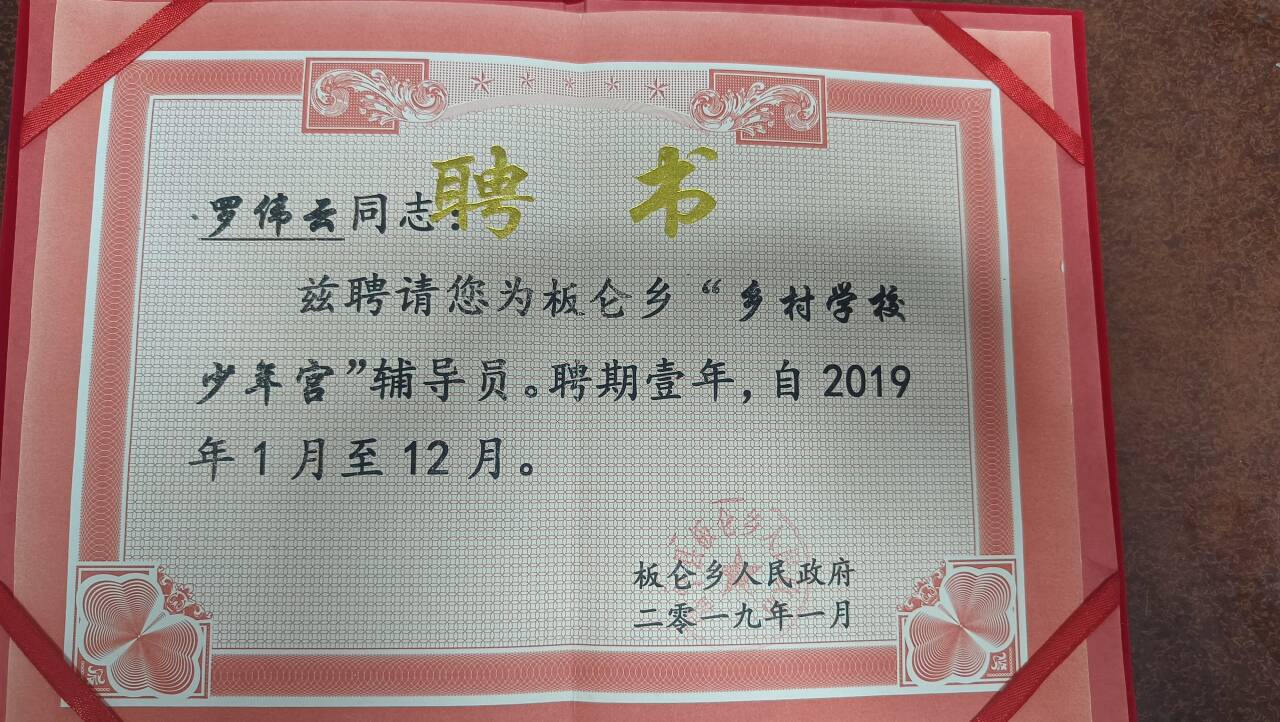 聘书
罗伟云同志：
兹聘请您为板仑乡“乡村学校
少年宫”辅导员。聘期壹年，自2019
年1月至12月。
板仑乡人民政府
二零一九年一月